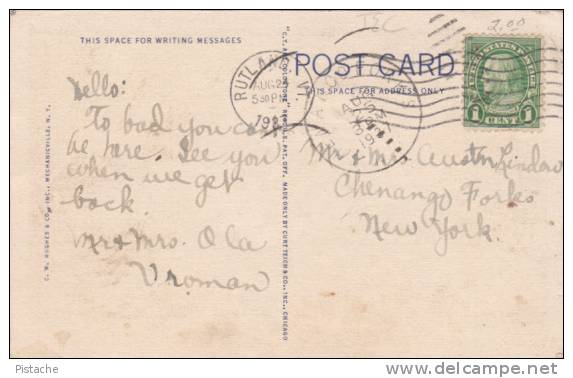 THIS SPACE FOR WRITING MESSAGES
POST CARD
THIS SPACE FOR ADDRESS ONLY
2.00
RUTLAND
AUG 23
5 30 PM
UNITED STATES POSTAGE
1 CENT 1
Hello:
To bad you can't
be here. See you
when we get
back.
Mr & Mrs. Ola
Vroman
Mr & Mrs Austin Lindow
Chenango Forks
New York.
C. W. HUGHES & CO., INC., MECHANICVILLE, N. Y.
"C.T. ART-COLORTONE" REG. U.S. PAT. OFF. MADE ONLY BY CURT TEICH & CO., INC., CHICAGO
Pistache
delcampe.net